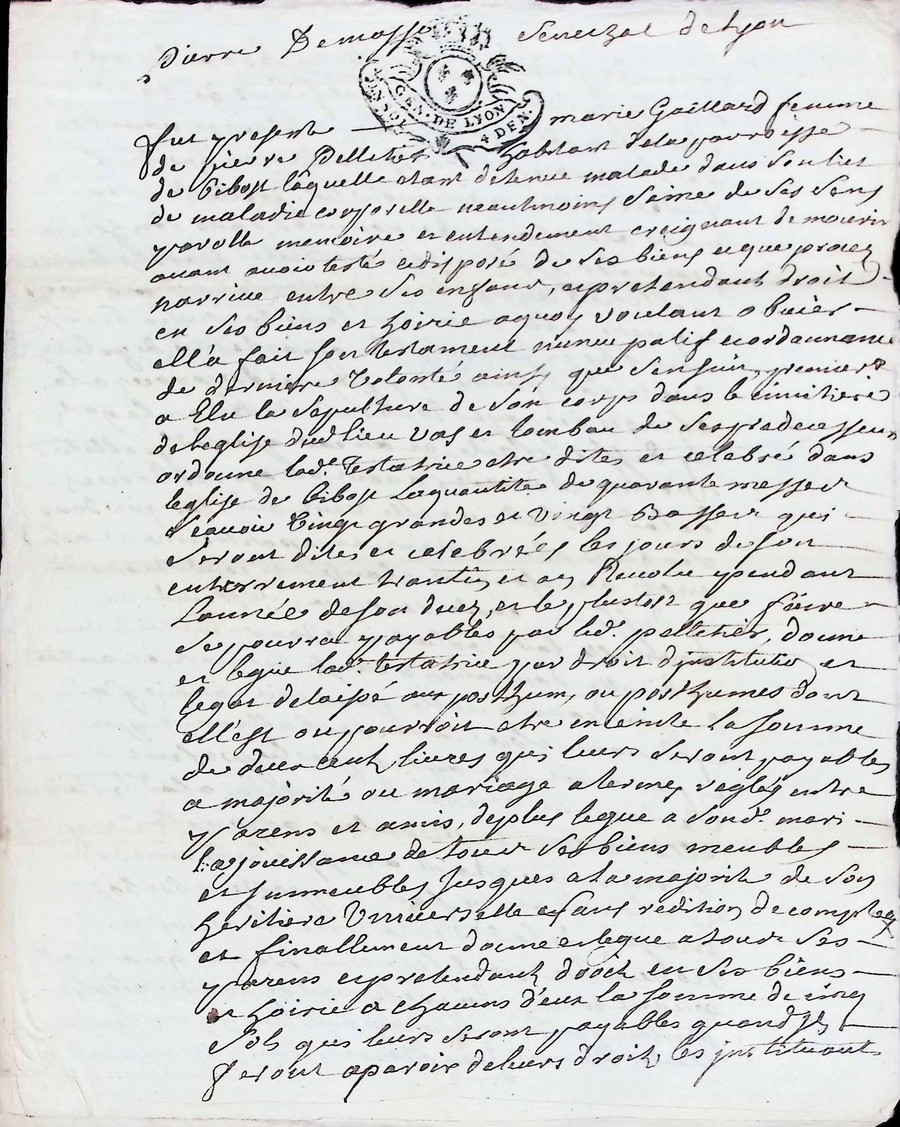 pierre Demosse Senechal de Lyon
GEN. DE LYON
4 DEN.
fut presente marie Gaillard femme
de pierre Pelletier habitant de la parroisse
de bibost laquelle etant detenue malade dans son lict
de maladie corporelle neautmoins saine de ses sens
parolle memoire et entendement creignant de mourir
avant avoir testé et disposé de ses biens et que procez
n'arrive entre ses enfans, et pretendant droit
en ses biens et hoirie a quoy voulant obvier
ell'a fait son testament nuncupatif et ordonnance
de derniere volonté ainsy que s'ensuit, premierᵗ
a Elu la sepulture de son corps dans le cimitiere
de l'eglise dud lieu vas et tombau de ses predecesseurs
ordonne lad.ᵉ testatrice etre dites et celebré dans
l'eglise de bibost la quantité de quarante messes
scavoir vingt grandes et vingt basses qui
seront dites et celebrées les jours de son
enterrement trantin et an Revolu pendant
l'année de son decez, et le plustost que faire
se pourra payables par led.ᵗ pelletier, donne
et legue lad.ᵉ testatrice par droit d'institution et
legat delaissé aux posthum, ou posthumes dont
ell'est ou pourroit etre enceinte la somme
de deux cent livres qui leurs seront payables
a majorité ou mariage a termes reglés entre
parens et amis, de plus legue a sond. mari
la jouissance de tous ses biens meubles
et immeubles jusques a la majorité de son
heritiere universelle et sans redition de comptes
et finallement donne et legue a tous ses
parens et pretendant droit en ses biens
et hoirie a chacuns d'eux la somme de cinq
sols qui leurs seront payables quand ils
feront aparoir de leurs droits, les instituant